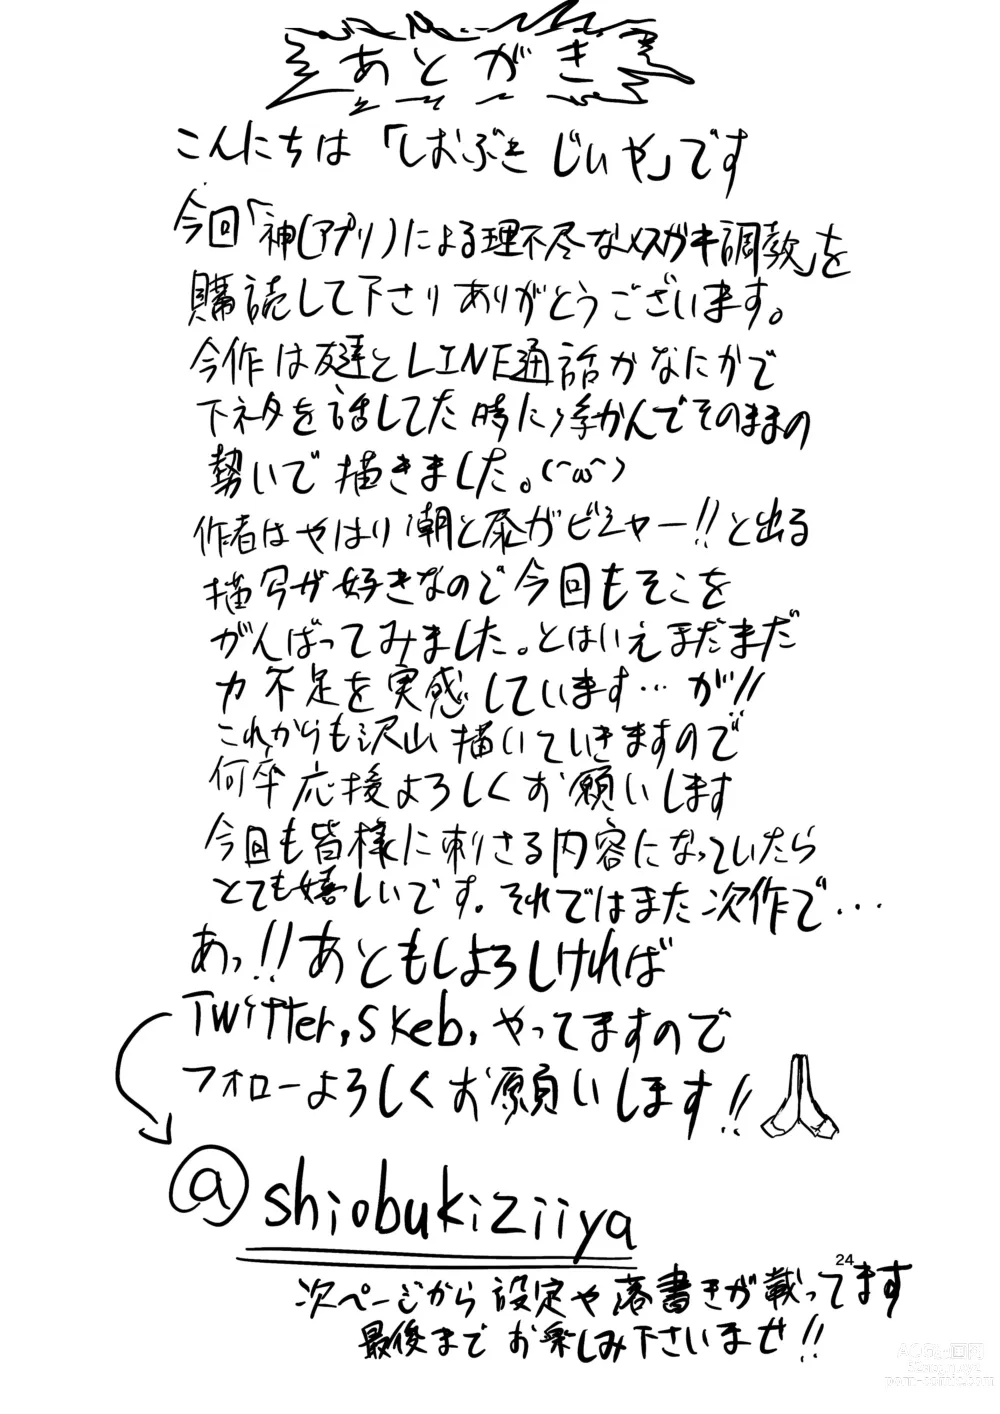 あとがき
こんにちは「しおぶき じいや」です
今回「神(アプリ)による理不尽なメスガキ調教」を
購読して下さりありがとうございます。
今作は友達とLINE通話かなにかで
下ネタを話してた時に浮かんでそのままの
勢いで描きました。(^ω^)
作者はやはり潮と尿がビシャー!!と出る
描写が好きなので今回もそこを
がんばってみました。とはいえまだまだ
力不足を実感しています…が!!
これからも沢山描いていきますので
何卒応援よろしくお願いします
今回も皆様に刺さる内容になっていたら
とても嬉しいです。それではまた次作で…
あっ!!あともしよろしければ
Twitter,Skeb,やってますので
フォローよろしくお願いします!!
@shiobukiziiya
24
次ページから設定や落書きが載ってます
最後までお楽しみ下さいませ!!
porn-comic.com